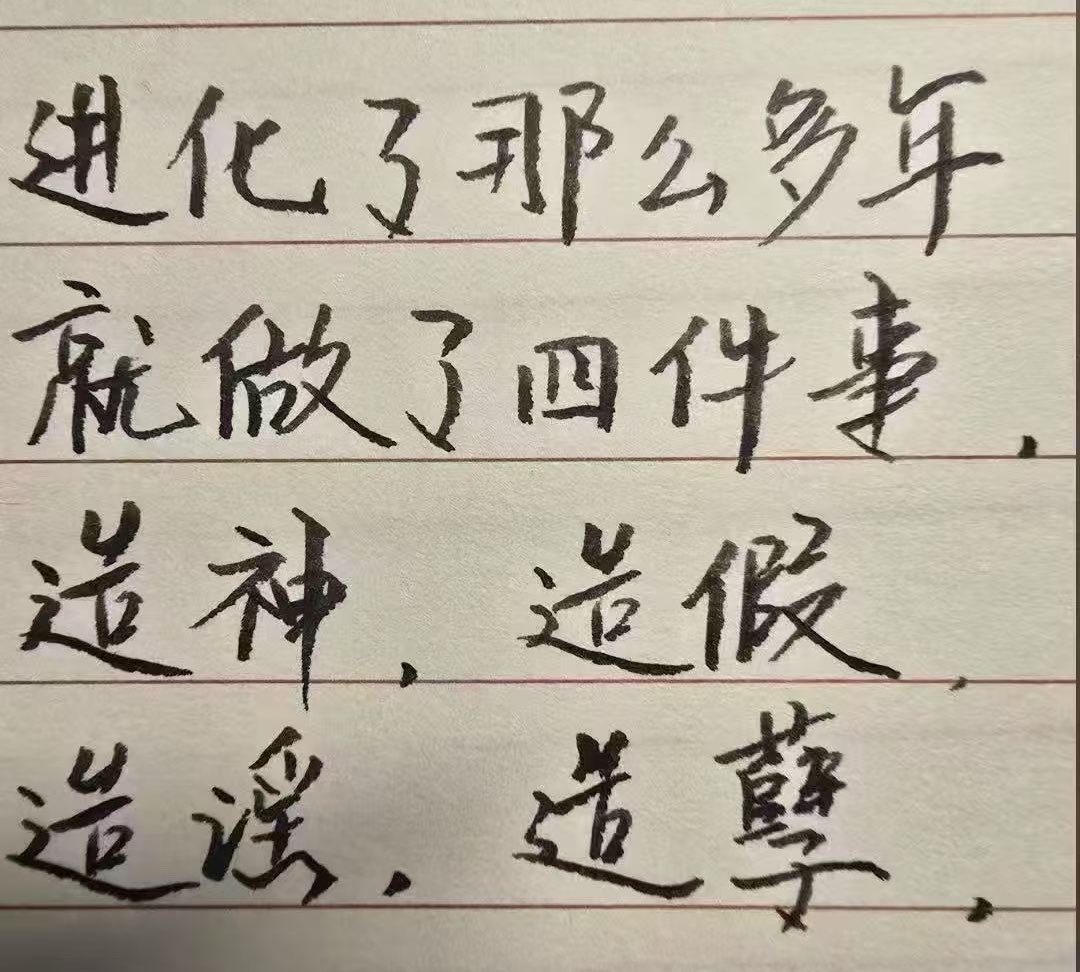 进化了那么多年
就做了四件事.
造神. 造假.
造谣. 造孽.